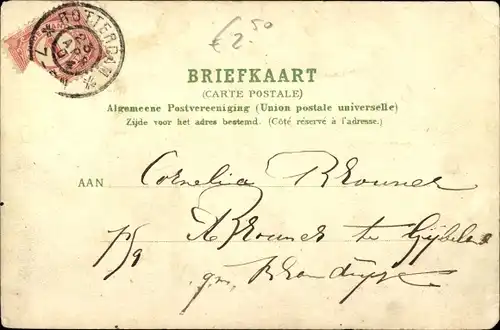 ROTTERDAM
7
€2.50
BRIEFKAART
(CARTE POSTALE)
Algemeene Postvereeniging (Union postale universelle)
Zijde voor het adres bestemd. (Côté réservé à l'adresse.)
AAN Cornelia Brouwer
p/a Brouwer te